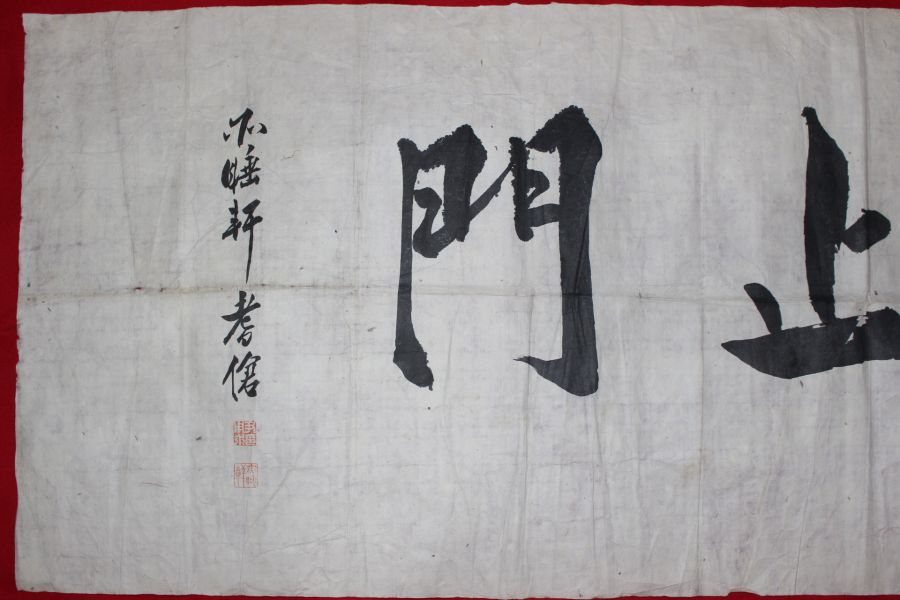 止門
不睡軒 耆傖